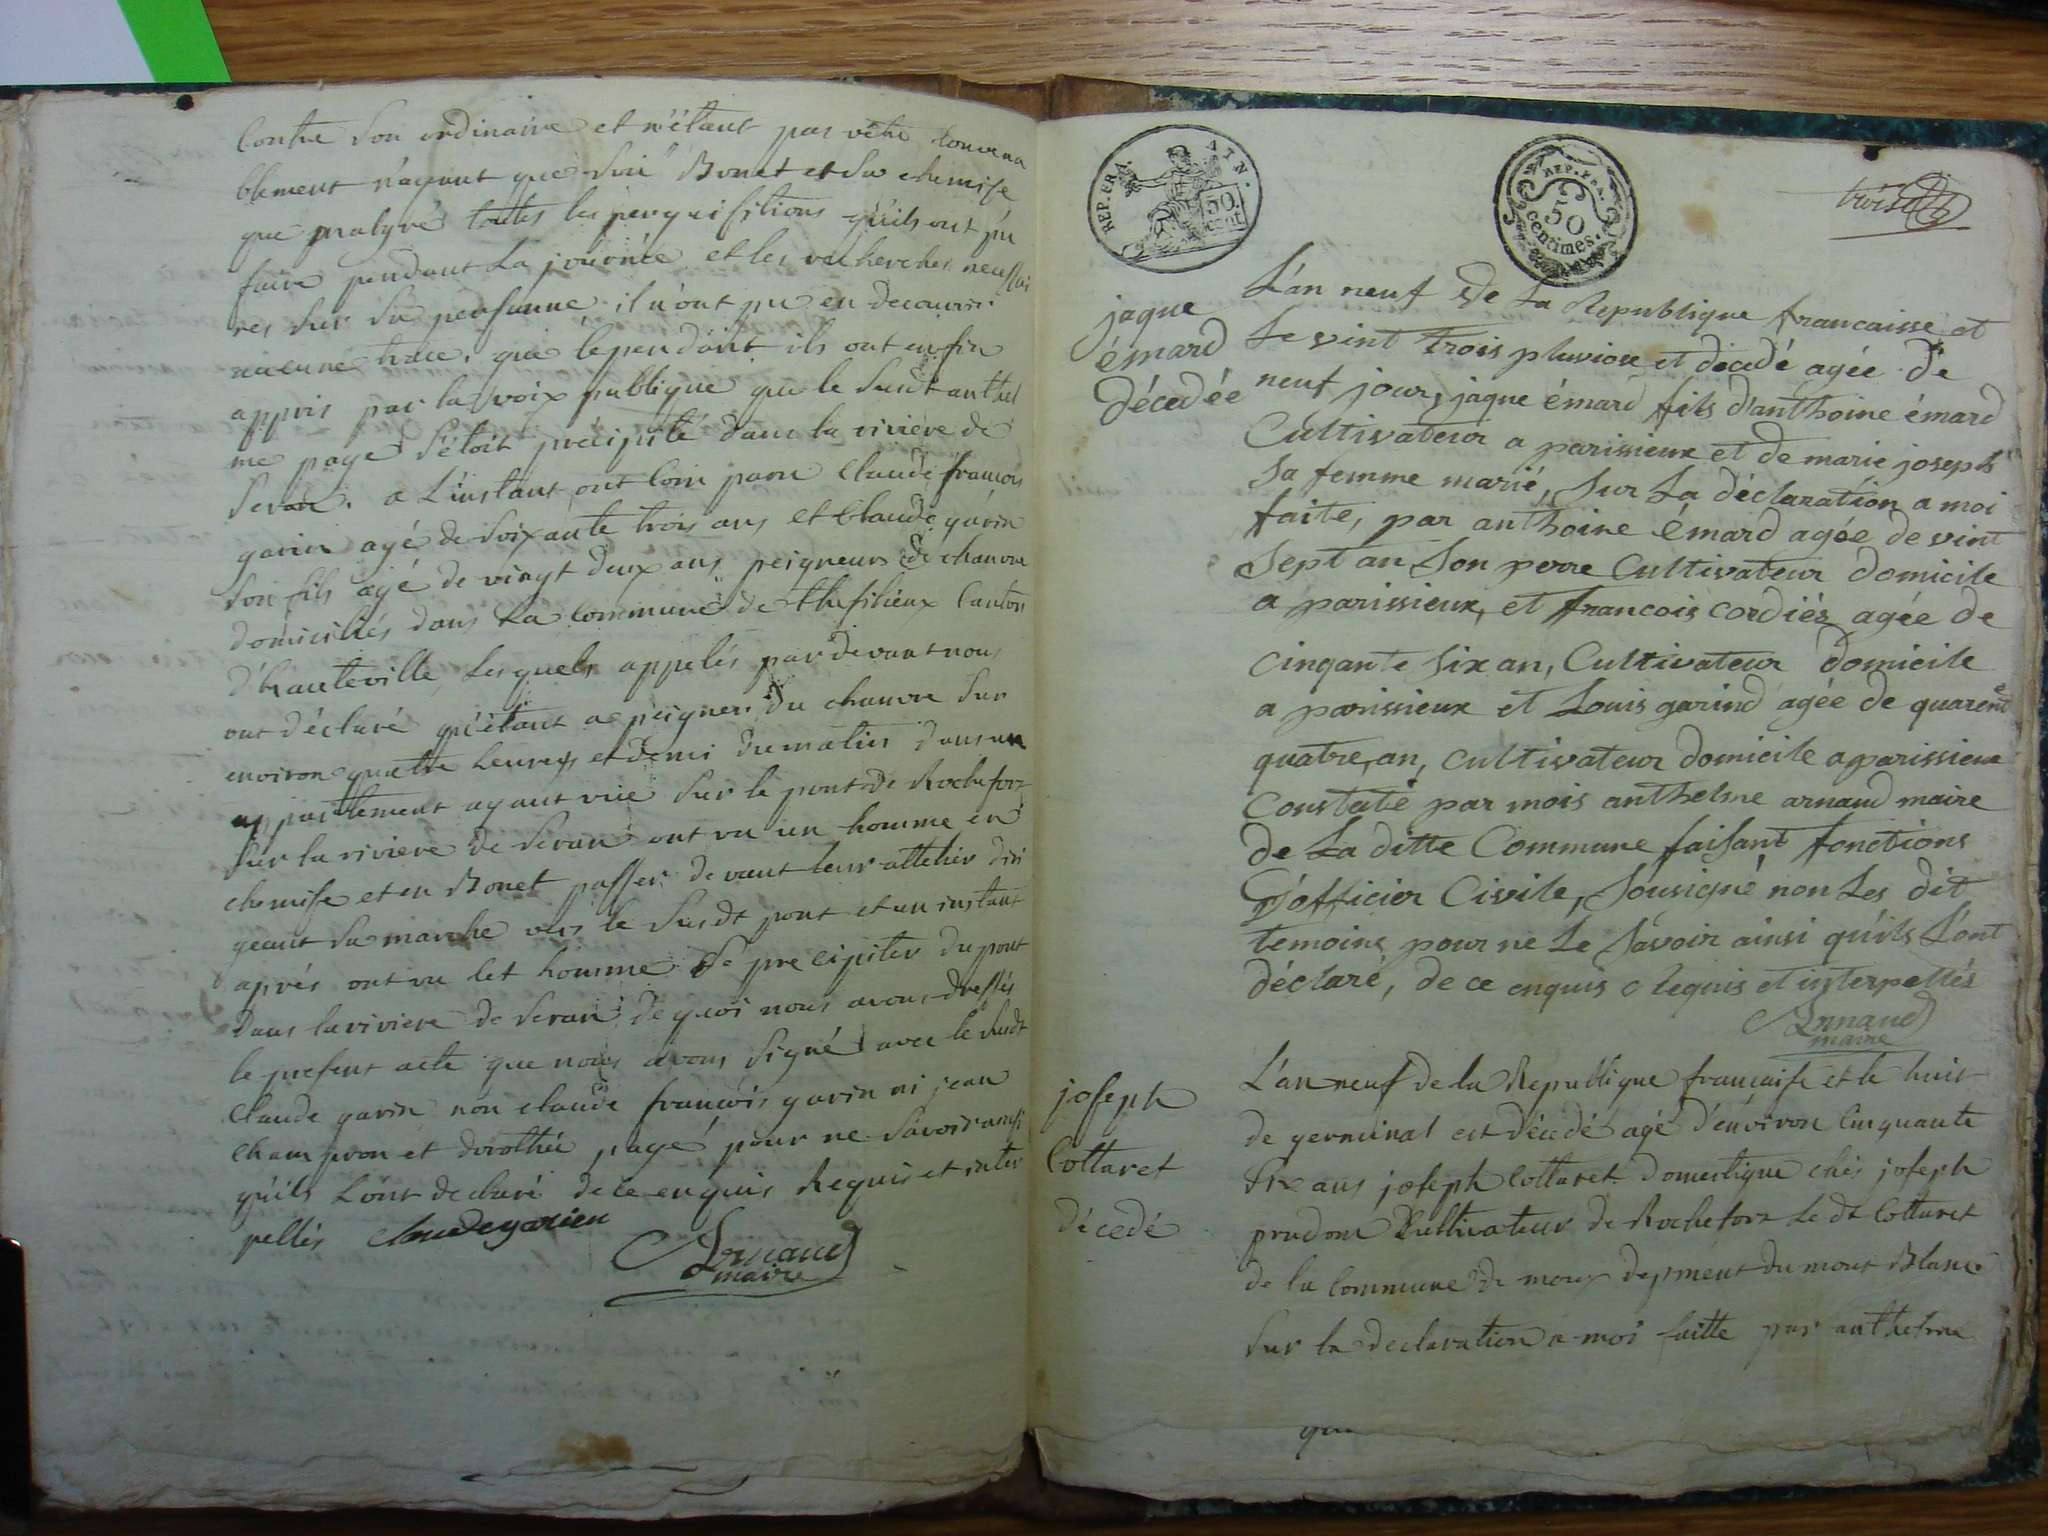 Contre son ordinaire et n'étant pas vêtu convena
blement n'ayant que son Bonet et sa chemise
que malgré toutes les perquisitions qu'ils ont pu
faire pendant la journée et les recherches necessai
res sur sa personne il n'ont pu en decouvrir
aucune trace. que cependant ils ont enfin
appris par la voix publique que le susdt anthel
me page s'étoit precipité dans la riviere de
Seran. a L'instant ont comparu claude françois
garin agé de soixante trois ans et Claude garin
son fils agé de vingt deux ans peigneurs de chanvre
domiciliés dans la commune de thesilieux Canton
d'hauteville, lesquels appelés pardevant nous
ont déclaré qu'étant a peigner du chanvre sur
environ quatre heures et demi du matin dans un
appartement ayant vue sur le pont de Rochefort
sur la riviere de Seran ont vu un homme en
chemise et en Bonet passer devant leur attelier diri
geant sa marche vers le susdt pont et un instant
aprés ont vu cet homme se precipiter du pont
dans la riviere de Seran de quoi nous avons dressés
le present acte que nous avons signé avec le susdt
claude garin non claude françois garin ni jean
champron et dorothée page pour ne savoir ainsi
qu'ils l'ont declaré de ce enquis Requis et inter
pellés claude garien
Arnaud
maire
REP. FRA. AIN.
50 cent
REP. FRA.
50
centimes.
jaque
émard
décedée
L'an neuf de La Republique francaisse et
Le vint trois pluviose et decedé agée de
neuf jour, jaque émard fils d'anthoine émard
Cultivateur a parissieux et de marie joseph
sa femme marié, sur La déclaration a moi
faite, par anthoine Emard agée de vint
sept an son perre Cultivateur domicile
a parissieux, et francois cordiés agée de
cinqante six an, Cultivateur domicile
a parissieux et Louis garind agée de quarent
quatre, an, cultivateur domicile a parissieux
Constaté par mois anthelme arnaud maire
de La ditte Commune faisant fonctions
D'officier Civile, Sousigné non Les dit
temoins pour ne Le Savoir ainsi qu'ils L'ont
déclaré, de ce enquis requis et interpellés
Arnaud
maire
joseph
Cottaret
décedé
L'an neuf de la Republique française et le huit
de germinal est décedé agé d'environ cinquante
six ans joseph Cottaret domestique chés joseph
prudom Cultivateur de Rochefort Le dt Cottaret
de la commune de department du mont Blanc
sur la declaration a moi faitte par anthelme